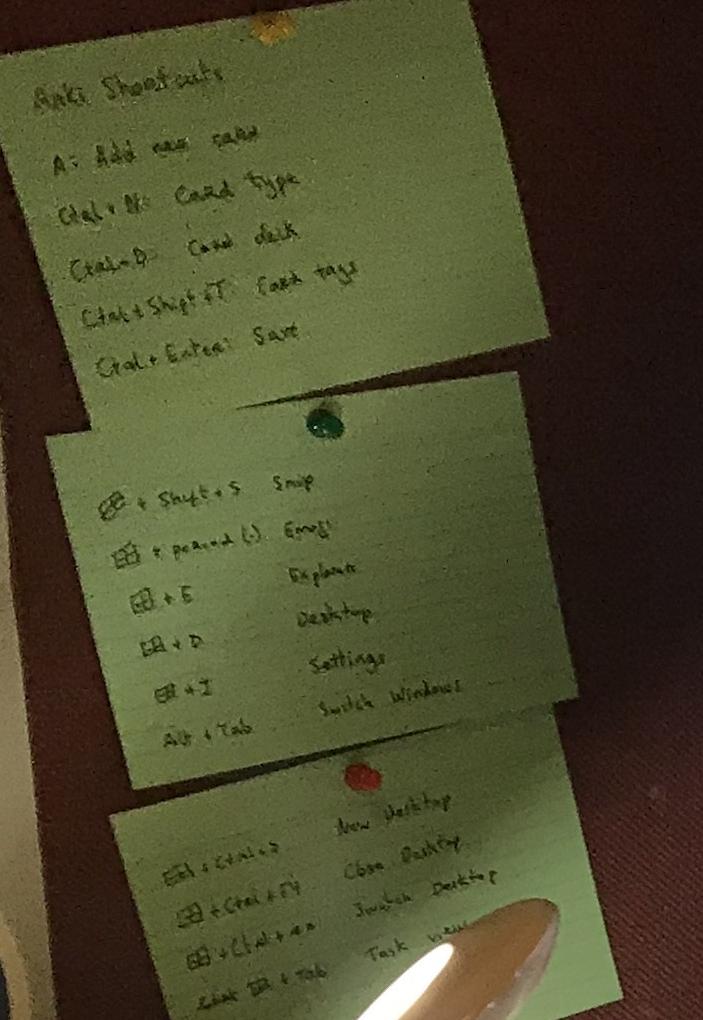 Anki Shortcuts
A: Add new card
Ctrl + N: Card type
Ctrl + D: Card deck
Ctrl + Shift + T: Card tags
Ctrl + Enter: Save
⊞ + Shift + S Snip
⊞ + period (.) Emoji
⊞ + E Explorer
⊞ + D Desktop
⊞ + I Settings
Alt + Tab Switch Windows
⊞ + Ctrl + D New Desktop
⊞ + Ctrl + F4 Close Desktop
⊞ + Ctrl + Switch Desktop
⊞ + Tab Task view